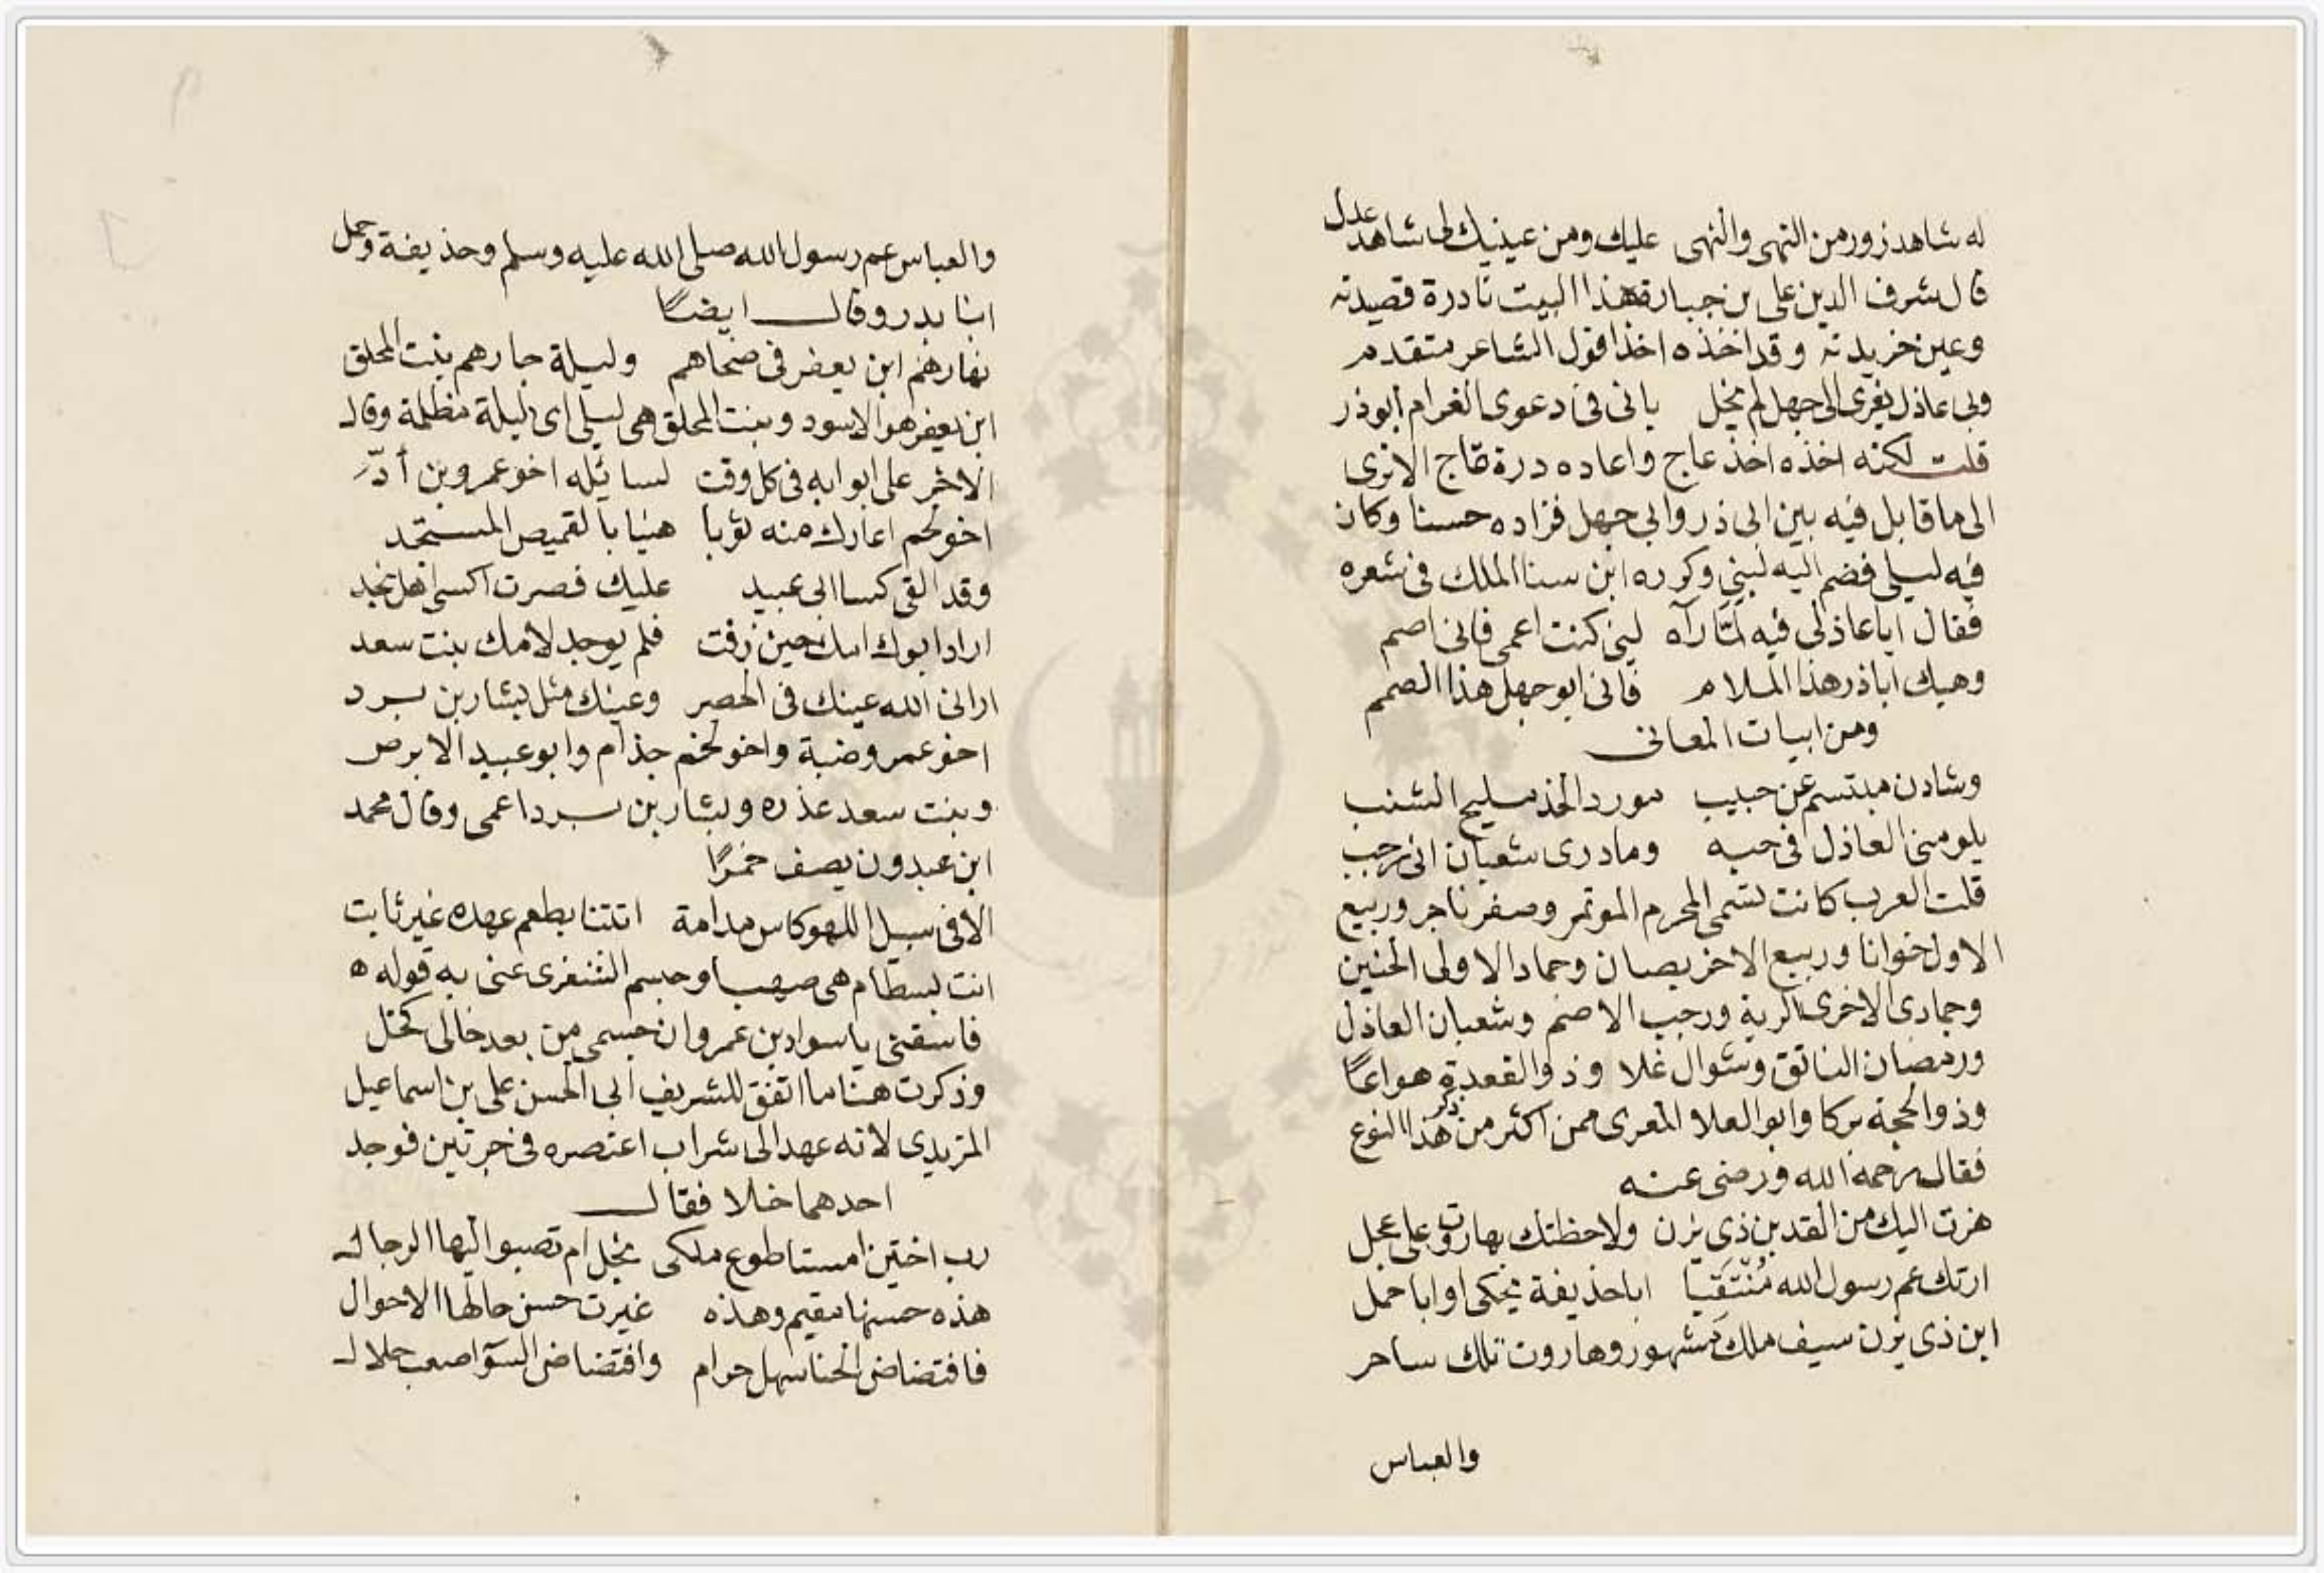 له شاهد زور من النهى والنهى عليك ومن عينيك لى شاهد عدل
قال شرف الدين على بن جبارة هذا البيت نادرة قصيدته
وعين خريدته وقد اخذه اخذا قول الشاعر متقدم
ولى عاذل يغرى الى جهل لم يخل بانى فى دعوى الغرام أبو ذر
قلت لكنه اخذه اخذ عاج واعاده درة تاج الا ترى
الى ما قابل فيه بين ابى ذر وابى جهل فزاده حسنا وكان
فيه ليلى فضم اليه لبنى وكرره ابن سنا الملك فى شعره
فقال ايا عاذلى فيه لمّا رآه لين كنت اعمى فانى اصم
وهبك اباذر هذا الملام فانى ابو جهل هذا الصمم
ومن ابيات المعانى
وشادن مبتسم عن حبيب مورد الخد مليح الشنب
يلومنى العاذل فى حبه وما درى شعبان انى رجب
قلت العرب كانت تسمى المحرم الموتمر وصفر ناجر وربيع
الاول خوانا وربيع الاخر بصان وحماد الاولى الحنين
وجمادى الاخرى الربة ورجب الاصم وشعبان العاذل
ورمضان الناتق وشوال غلا وذو القعدة هواعًا
وذو الحجة بركا وابو العلا المعرى ممن اكثر من ذكر هذا النوع
فقال رحمه الله ورضى عنه
هزت اليك من القد بن ذى يزن ولاحظتك بهاروت على عجل
ارتك عم رسول الله مُنْتَقِبًا ابا حذيفة يحكى او ابا حمل
ابن ذى يزن سيف ملك مشهور وهاروت تلك ساحر
والعباس
والعباس عم رسول الله صلى الله عليه وسلم وحذيفة وحمل
ابنا بدر وقال ايضًا
نهارهم ابن يعفر فى ضحاهم وليلة جارهم بنت المحلق
ابن يعفر هو الاسود وبنت المحلق هى ليلى اى ليلة مظلمة وقال
الاخر على ابوابه فى كل وقت لسائله اخو عمرو بن أدّ
اخو لخم اعارك منه ثوبا هنيا بالقميص المستجد
وقد القى كسا ابى عبيد عليك فصرت اكسى اهل نجد
اراد ابوك امك حين زفت فلم يوجد لامك بنت سعد
ارانى الله عينك فى الحصر وعينك مثل بشار بن برد
اخو عمرو ضبة واخو لخم جذام وابو عبيد الابرص
وبنت سعد عذره وبشار بن برد اعمى وقال محمد
ابن عبدون يصف خمرًا
الا فى سبيل اللهو كاس مدامة اتتنا بطعم عهده غير ثابت
انت بسطام هى صهبا وجسم الشنفرى عنى به قوله ه
فاسقنى يا سواد بن عمرو ان جسمى من بعد خالى لخل
وذكرت هنا ما اتفق للشريف ابى الحسن على بن اسماعيل
الزيدى لانه عهد الى شراب اعتصره فى جرتين فوجد
احدهما خلا فقال
رب اختين امستا طوع ملكى نجل ام تصبو اليها الرجال
هذه حسنها مقيم وهذه غيرت حسن حالها الاحوال
فافتضاض الحنا سهل حرام وافتضاض السوآ صعب حلال